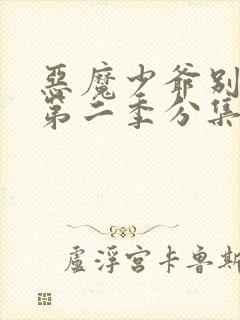 惡魔少爺別
第二季分集
盧浮宮卡魯斯